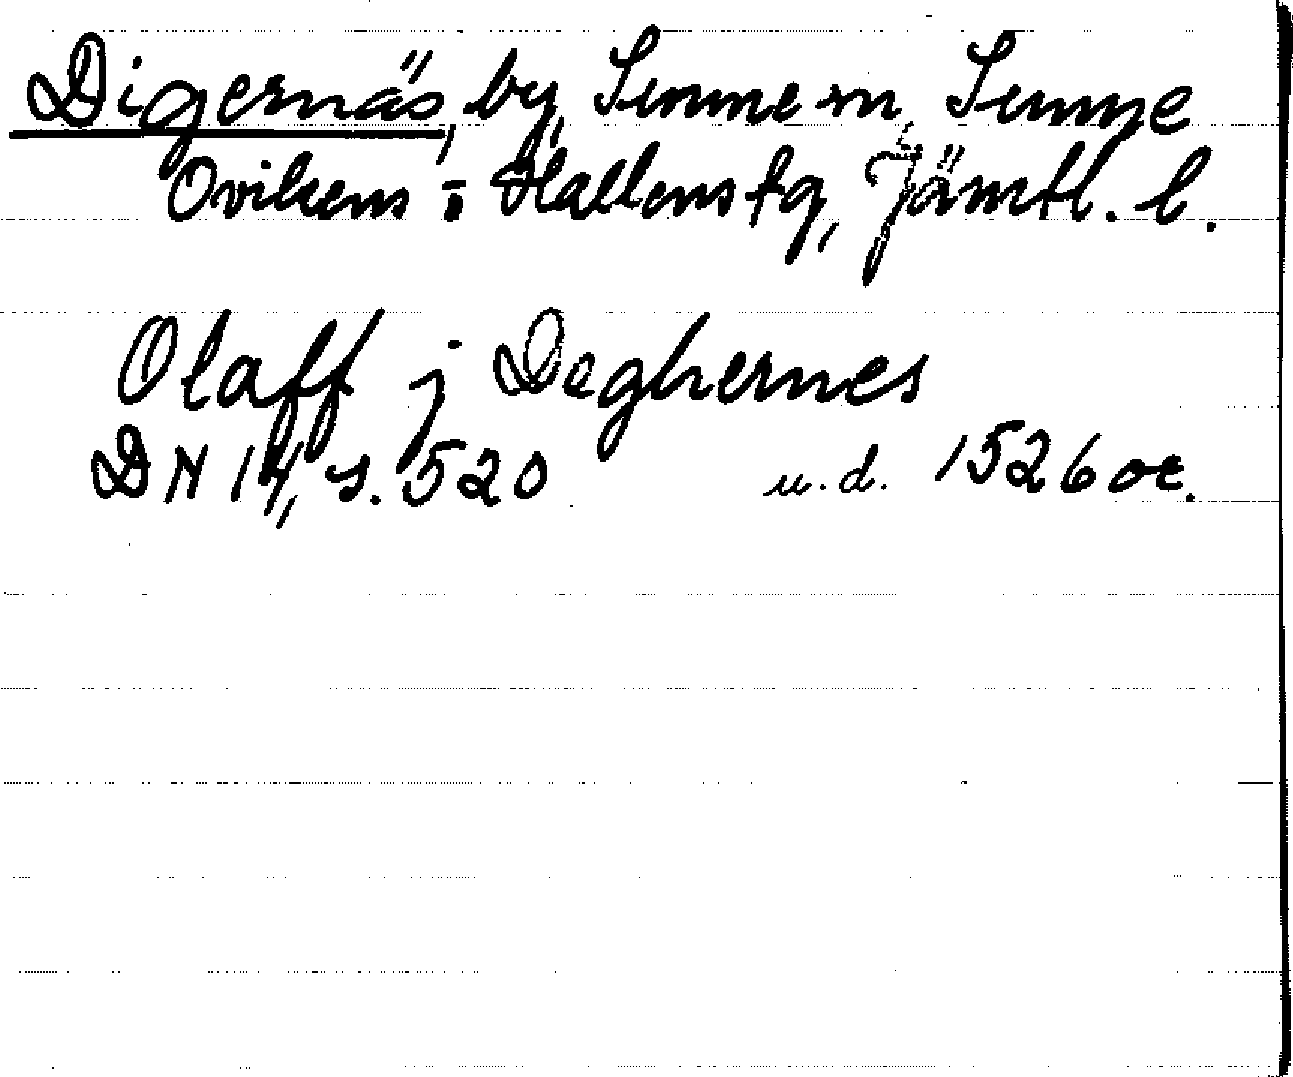 Digernäs, by, Sunne sn, Sunne
Ovikens o. Hallens tg, Jämtl. l.
Olaff j Deghernes
DN 14, s. 520 u.d. 1526 oc.